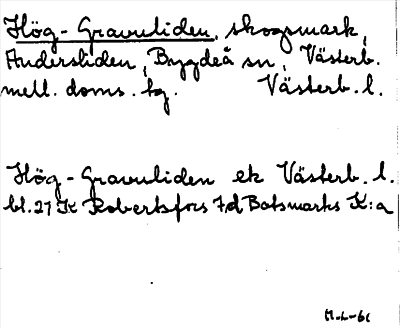 Hög-Gravuliden, skogsmark,
Andersliden, Bygdeå sn, Västerb.
mell. doms. hg. Västerb. l.
Hög-Gravuliden ek Västerb. l.
bl. 27 K Robertsfors 7d Botsmarks K:a